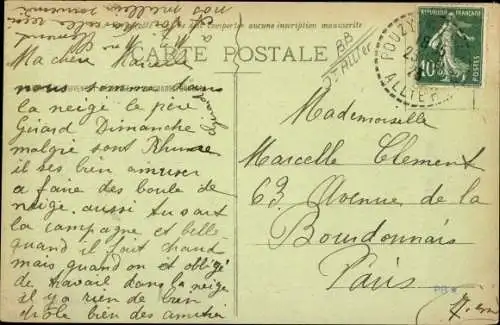 CARTE POSTALE
Ma chère Marcelle
nous somme dans
la neige le père
Girard Dimanche
malgré sont Rhume
il ses bien amuser
a faire des boule de
neige. aussi tu sait
la campagne et belle
quand il fait chaud
mais quand on et obligé
de travail dans la neige
il y a rien de bien
drole bien des
Mademoiselle
Marcelle Clement
63 Avenue de la
Bourdonnais
Paris
RÉPUBLIQUE FRANÇAISE
10
POSTES
ALLIER